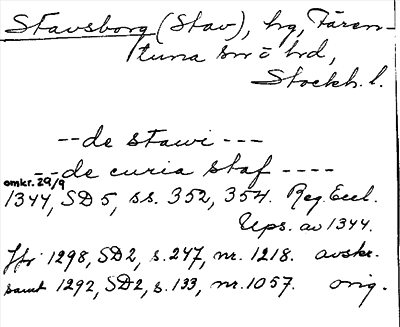 Stavsborg (Stav), hg, Fären-
tuna sn o hd,
Stockh. l.
--de stawi ---
--de curia staf ----
omkr. 29/9
1344, SD 5, ss. 352, 354. Reg. Eccl.
Ups. av 1344.
Jfr 1298, SD2, s. 247, nr. 1218. avskr.
samt 1292, SD2, s. 133, nr. 1057. orig.